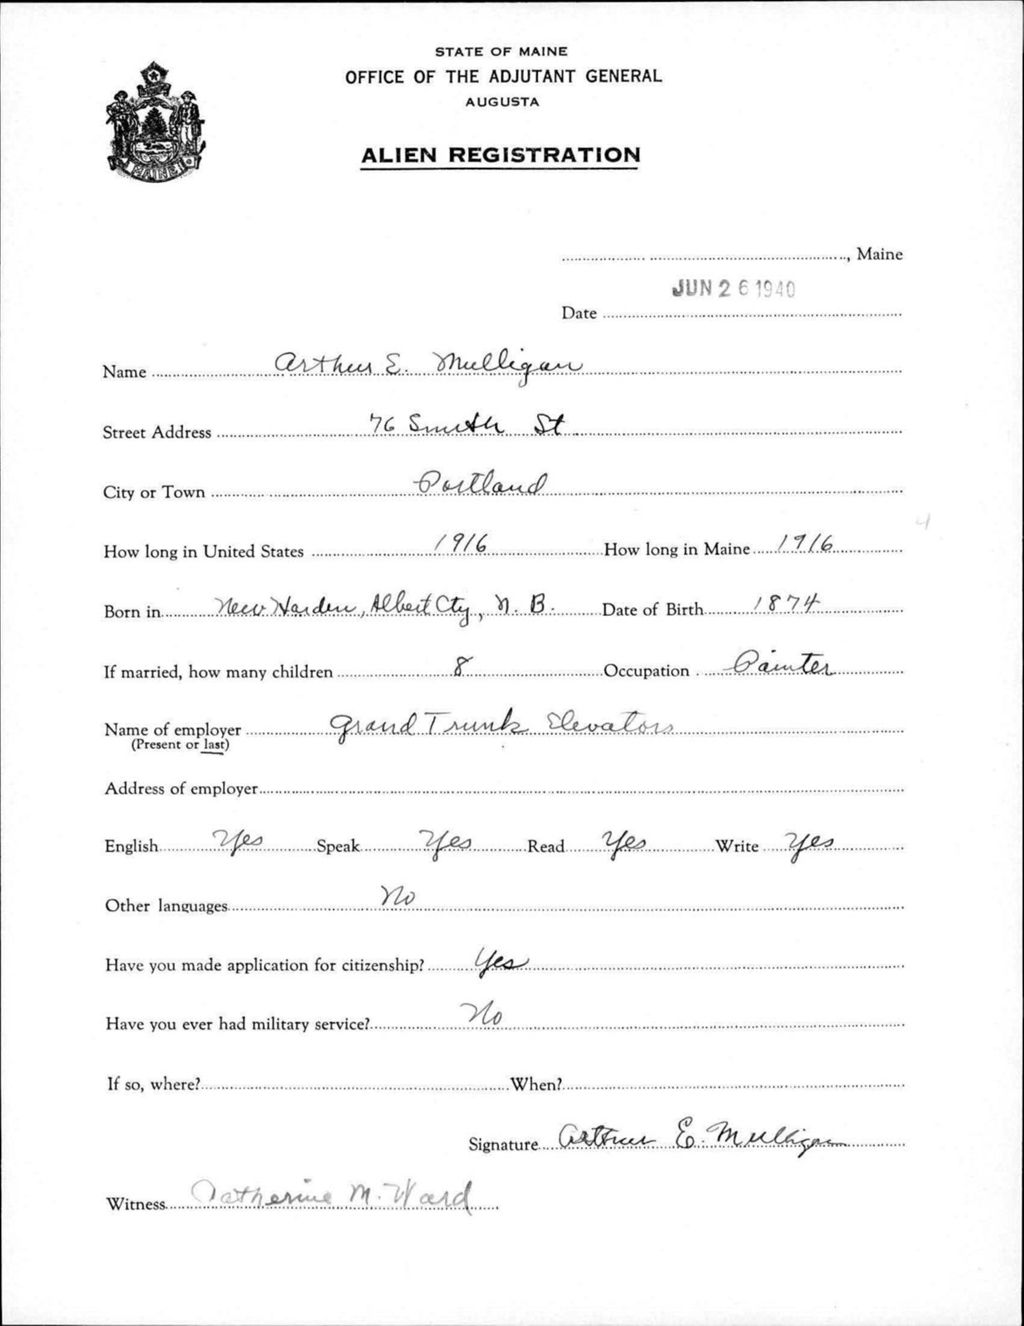 STATE OF MAINE
OFFICE OF THE ADJUTANT GENERAL
AUGUSTA
ALIEN REGISTRATION
MAINE
, Maine
JUN 26 1940
Date
Name Arthur E. Mulligan
Street Address 76 Smith St
City or Town Portland
How long in United States 1916 How long in Maine 1916
Born in New Harden, Albert Cty, N. B. Date of Birth 1874
If married, how many children 8 Occupation Painter
Name of employer Grand Trunk Elevators
(Present or last)
Address of employer
English Yes Speak Yes Read Yes Write Yes
Other languages No
Have you made application for citizenship? Yes
Have you ever had military service? No
If so, where? When?
Signature Arthur E. Mulligan
Witness Catherine M. Ward
4